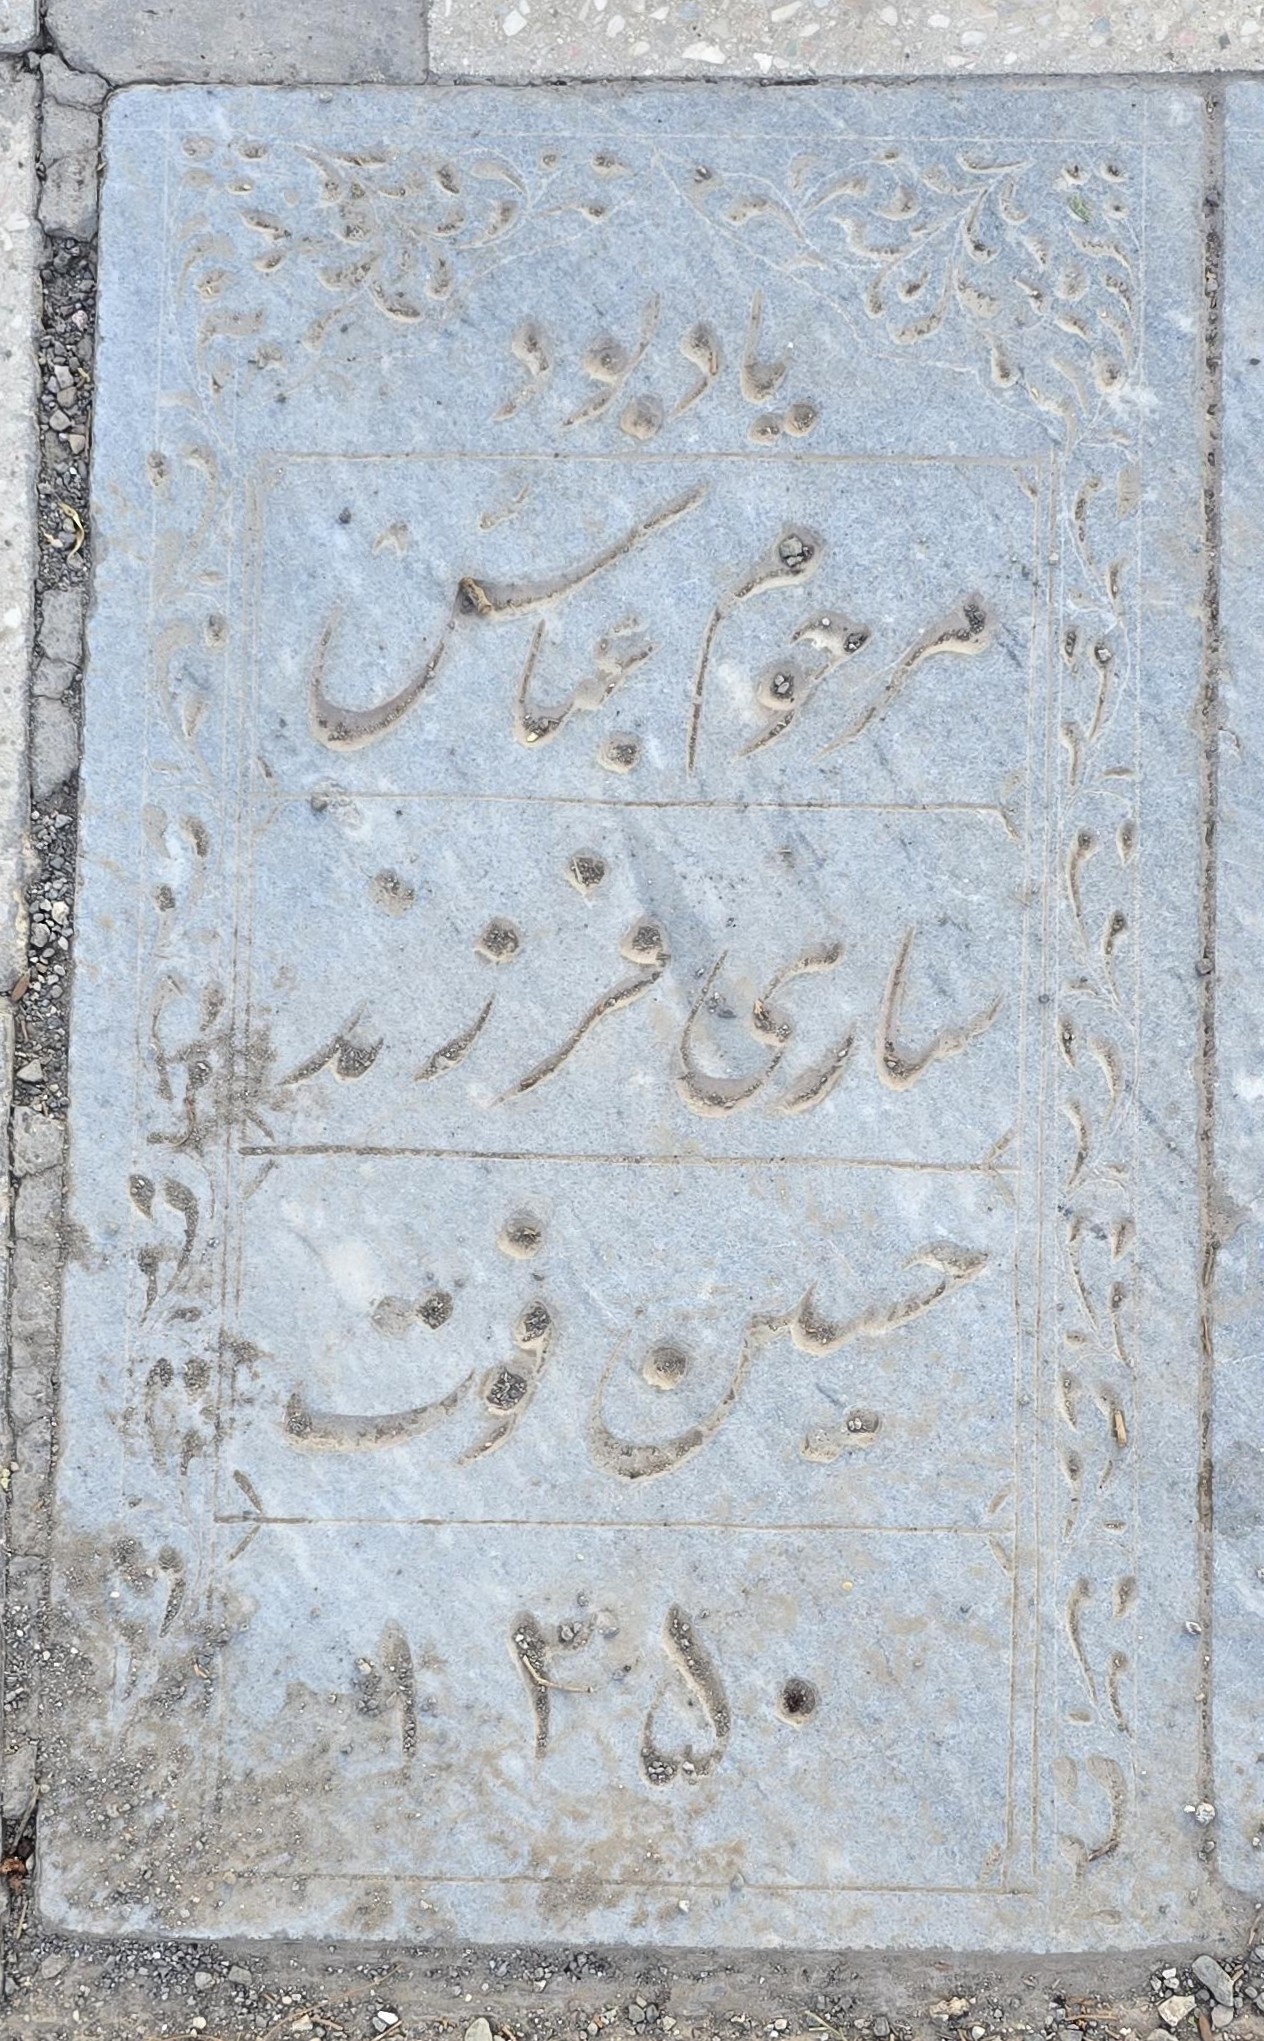 یادبود
مرحوم عباس
ساری فرزند
حسین فوت
۱۳۵۰